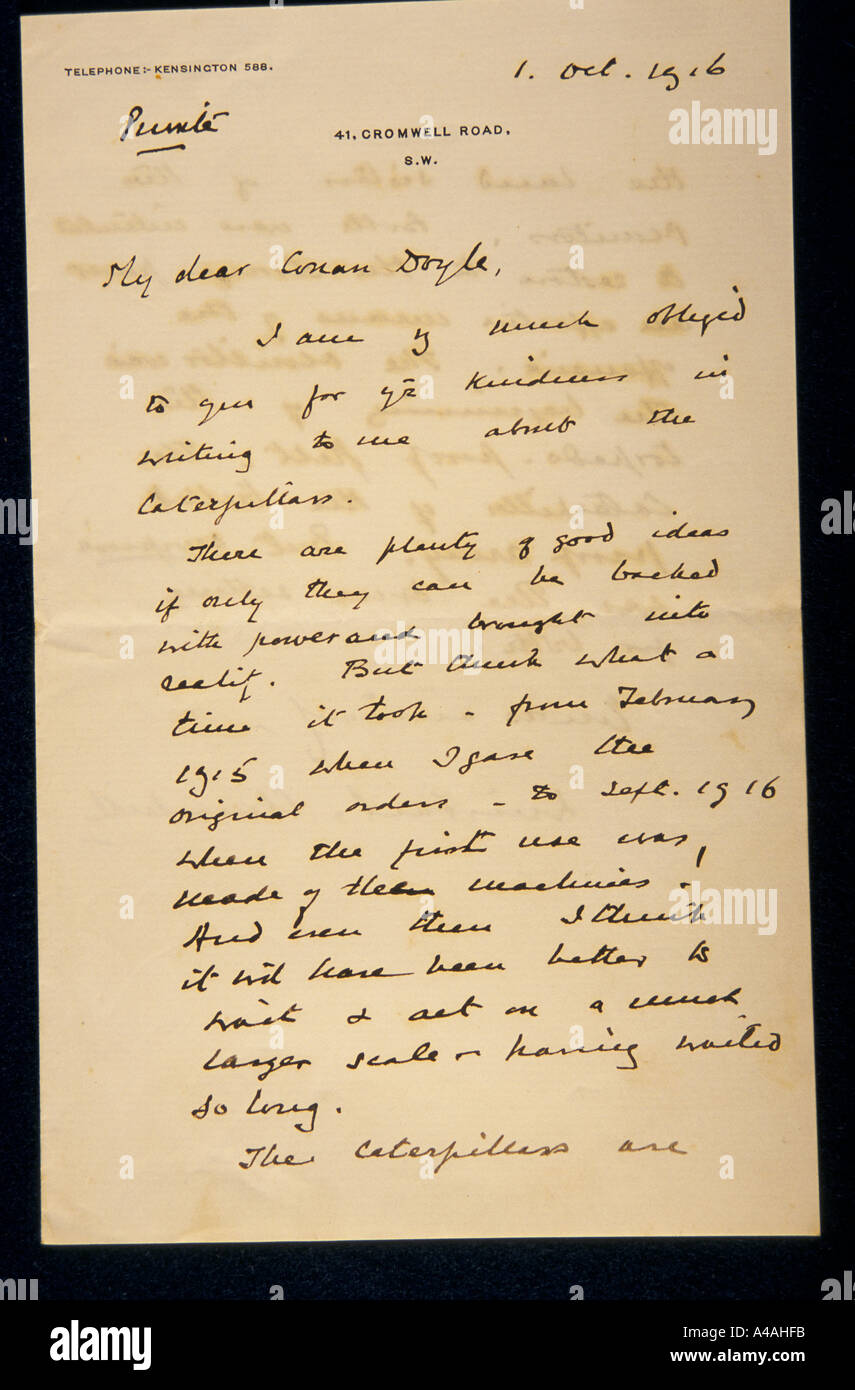 TELEPHONE:- KENSINGTON 588.
1. Oct. 1916
Private
41, CROMWELL ROAD,
S.W.
My dear Conan Doyle,
I am very much obliged
to you for yr kindness in
writing to me about the
Caterpillars.
There are plenty of good ideas
if only they can be backed
with power and brought into
reality. But think what a
time it took - from February
1915 when I gave the
original orders - to Sept. 1916
when the first use was
made of these machines!
And even then I think
it wd have been better to
wait & act on a much
larger scale - having waited
so long.
The caterpillars are
alamy
Image ID: A4AHFB
www.alamy.com